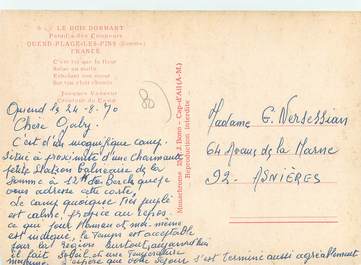 LE BOIS DORMANT
Paradis des Campeurs
QUEND-PLAGE-LES-PINS (Somme)
FRANCE
C'est toi que la fleur
Salue au matin
Jacques Vasseur
Créateur du Camp
Monochrome
Reproduction interdite
Quend le 24-8-70
Chère Gaby.
C'est d'un magnifique camp.
Situé à proximité d'une charmante
petite Station Balnéaire de la
Somme à 12 km de Berck que je
vous adresse cette carte,
Le camp quoique très peuplé
est calme, propice au repos.
ce qui pour Maman et moi-même
est indiqué, le temps est acceptable
pour la région surtout aujourd'hui
il fait soleil, et une température
J'espère que votre séjour s'est terminé aussi agréablement
80
Madame G. Nersessian
64 Avenue de la Marne
92 - ASNIÈRES